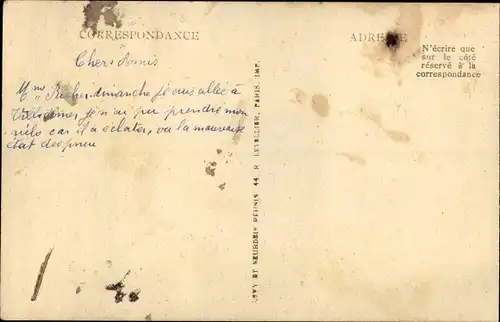 CORRESPONDANCE
ADRESSE
N'écrire que
sur le côté
réservé à la
correspondance
Chers Amis
dimanche je suis allée à
je n'ai pu prendre mon
vélo car il a eclater, vu la mauvaise
état des pneu
LÉVY ET NEURDEIN RÉUNIS 44, R. LETELLIER, PARIS. IMP.